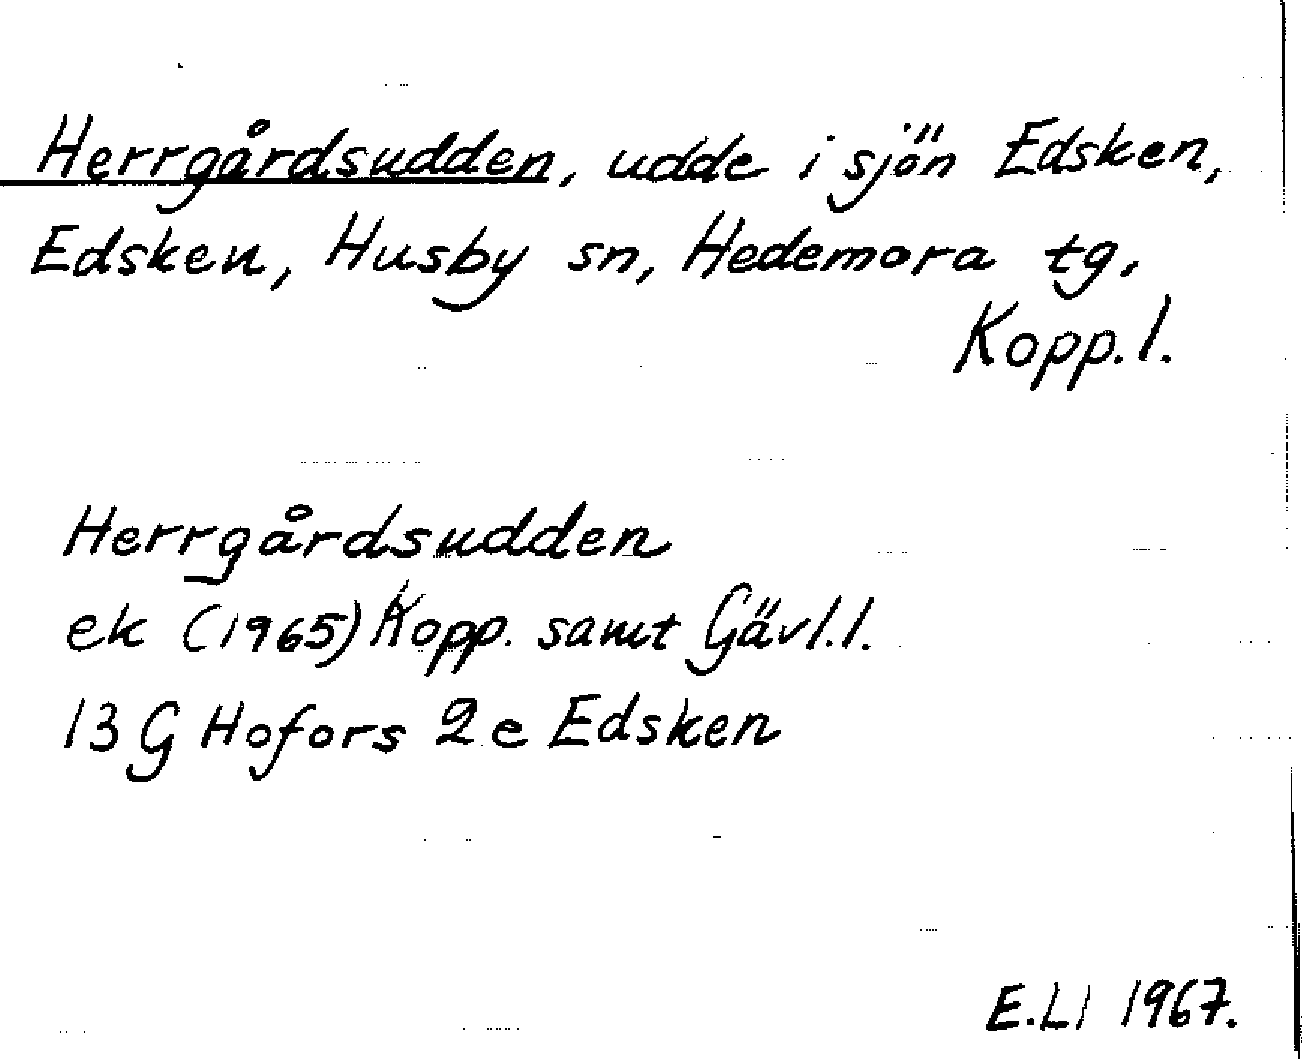 Herrgårdsudden, udde i sjön Edsken,
Edsken, Husby sn, Hedemora tg,
Kopp.l.
Herrgårdsudden
ek (1965) Kopp. samt Gävl.l.
13 G Hofors 2 e Edsken
E.Ll 1967.